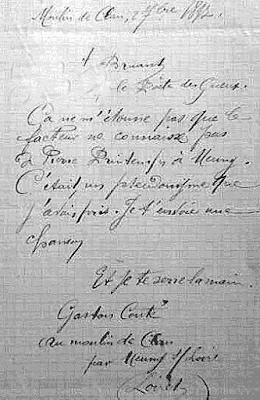 Moulin de Clan, 27bre 1892.
A Bruant
le Poète des Gueux.
Ça ne m'étonne pas que le
facteur ne connaisse pas
de Pierre Printemps à Meung.
C'était un pseudonyme que
j'avais pris. Je t'envoie une
chanson
Et je te serre la main.
Gaston Couté
au moulin de Clan
par Meung s/ Loire
(Loiret)